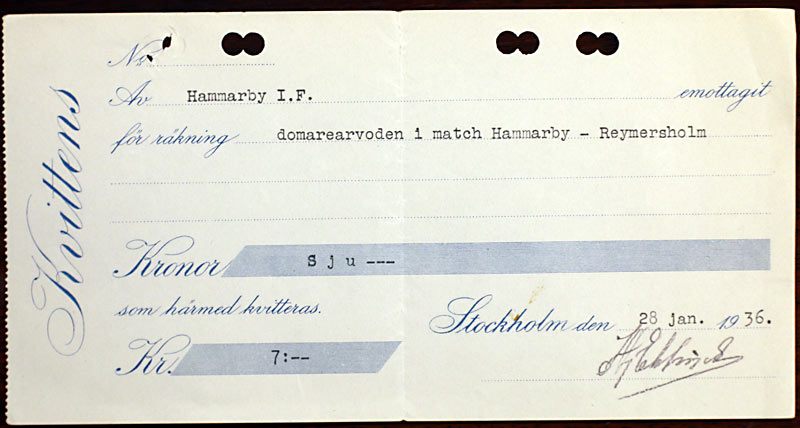 Kvittens
No
Av Hammarby I.F. emottagit
för räkning domarearvoden i match Hammarby - Reymersholm
Kronor Sju---
som härmed kvitteras.
Stockholm den 28 jan. 1936.
Kr. 7:--